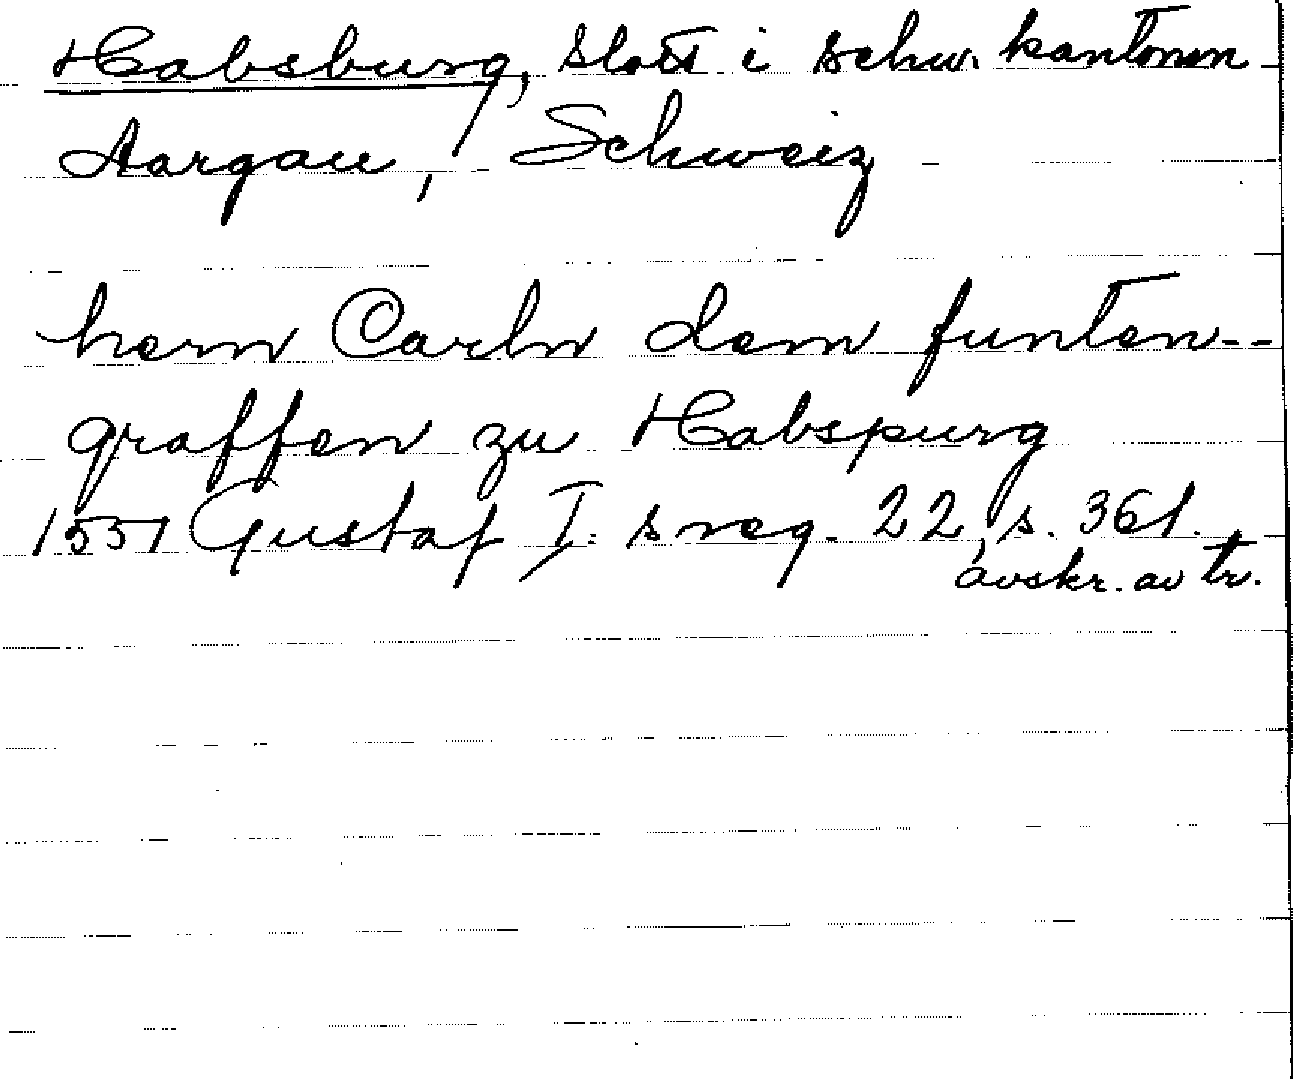 Habsburg, slott i schw. kantonen
Aargau, Schweiz
hern Carln dem funten--
graffen zu Habspurg
1551 Gustaf I:s reg. 22, s. 361.
avskr. av tr.